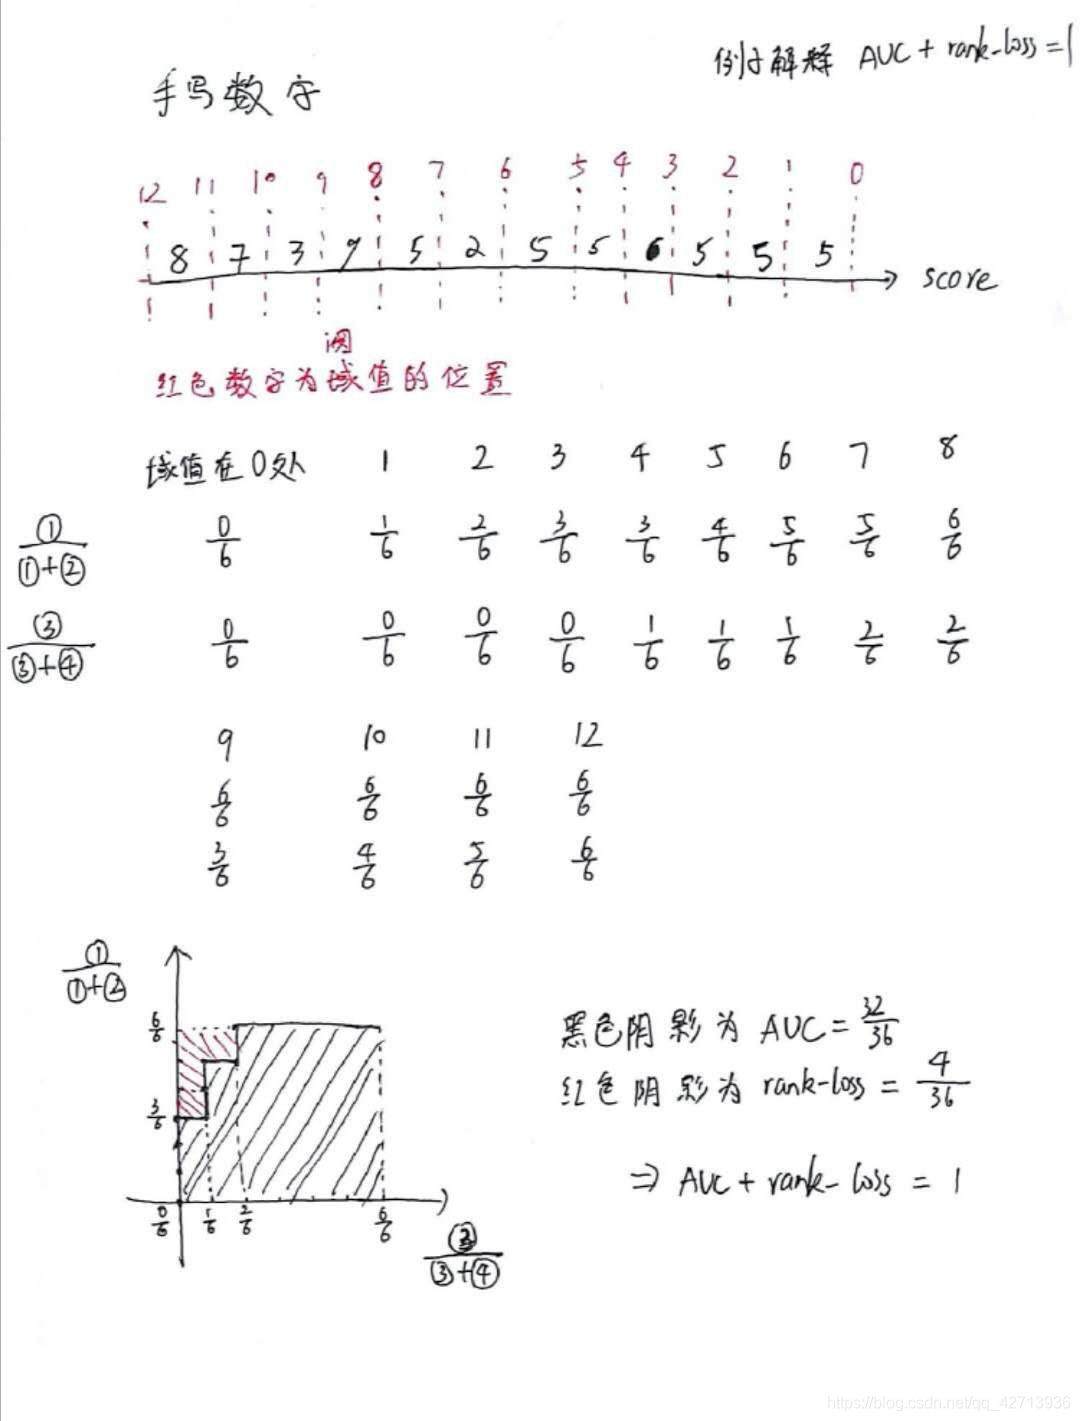 例子解释 AUC + rank-loss = 1
手写数字
12 11 10 9 8 7 6 5 4 3 2 1 0
8 7 3 9 5 2 5 5 6 5 5 5 score
阈
红色数字为域值的位置
域值在0处 1 2 3 4 5 6 7 8
①/(①+②) 0/6 1/6 2/6 3/6 3/6 4/6 5/6 5/6 6/6
③/(③+④) 0/6 0/6 0/6 0/6 1/6 1/6 1/6 2/6 2/6
9 10 11 12
6/6 6/6 6/6 6/6
3/6 4/6 5/6 6/6
①/(①+②)
6/6
3/6
0/6 1/6 2/6 6/6
③/(③+④)
黑色阴影为 AUC = 32/36
红色阴影为 rank-loss = 4/36
⇒ AUC + rank-loss = 1
https://blog.csdn.net/qq_42713936